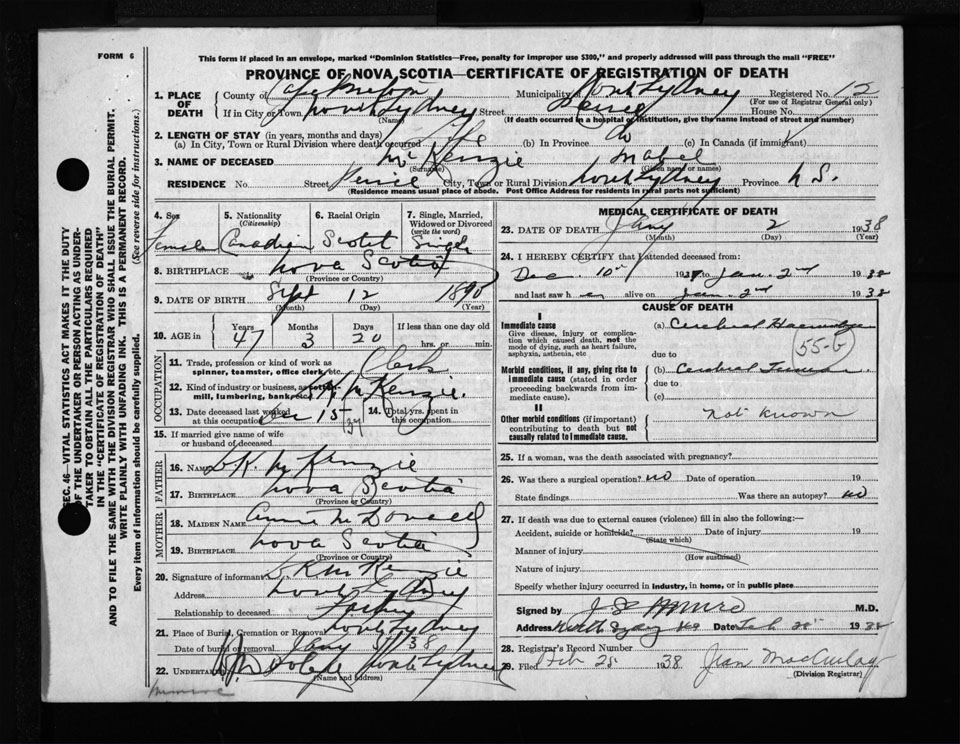 FORM 6
This form if placed in an envelope, marked "Dominion Statistics—Free, penalty for improper use $300," and properly addressed will pass through the mail "FREE"
PROVINCE OF NOVA SCOTIA—CERTIFICATE OF REGISTRATION OF DEATH
1. PLACE OF DEATH
County of Cape Breton Municipality North Sydney Registered No. 12
(For use of Registrar General only)
If in City or Town North Sydney Street Peirce House No.
(Name) (If death occurred in a hospital or institution, give the name instead of street and number)
2. LENGTH OF STAY (in years, months and days)
(a) In City, Town or Rural Division where death occurred Life (b) In Province (c) In Canada (if immigrant)
3. NAME OF DECEASED McKenzie Mabel
(Surname) (Given name or names)
RESIDENCE No. Street Peirce City, Town or Rural Division North Sydney Province N.S.
(Residence means usual place of abode. Post Office Address for residents in rural parts not sufficient)
4. Sex Female
5. Nationality (Citizenship) Canadian
6. Racial Origin Scotch
7. Single, Married, Widowed or Divorced (write the word) Single
8. BIRTHPLACE Nova Scotia
(Province or Country)
9. DATE OF BIRTH Sept 12 1890
(Month) (Day) (Year)
10. AGE in Years Months Days If less than one day old
47 3 20 hrs. or min.
OCCUPATION
11. Trade, profession or kind of work as spinner, teamster, office clerk, etc. Clerk
12. Kind of industry or business, as cotton-mill, lumbering, bank, etc. McKenzie.
13. Date deceased last worked at this occupation Dec 15 37
14. Total yrs. spent in this occupation
15. If married give name of wife or husband of deceased
FATHER
16. Name D.K. McKenzie
17. Birthplace Nova Scotia
(Province or Country)
MOTHER
18. Maiden Name Annie McDonald
19. Birthplace Nova Scotia
(Province or Country)
20. Signature of informant D K McKenzie
Address North Sydney
Relationship to deceased Father
21. Place of Burial, Cremation or Removal North Sydney
Date of burial or removal Jany 5 38
22. Undertaker North Sydney
(Name and Address)
MEDICAL CERTIFICATE OF DEATH
23. DATE OF DEATH Jany 2 1938
(Month) (Day) (Year)
24. I HEREBY CERTIFY that I attended deceased from:
Dec. 10th 1937 to Jan. 2nd 1938
and last saw her alive on Jan. 2nd 1938
CAUSE OF DEATH
I
Immediate cause
Give disease, injury or complication which caused death, not the mode of dying, such as heart failure, asphyxia, asthenia, etc
(a) Cerebral Haemorrhage
55-G
due to
Morbid conditions, if any, giving rise to immediate cause (stated in order proceeding backwards from immediate cause).
(b) Cerebral Tumour.
due to
(c)
II
Other morbid conditions (if important) contributing to death but not causally related to immediate cause.
Not known
25. If a woman, was the death associated with pregnancy?
26. Was there a surgical operation? No Date of operation 19
State findings Was there an autopsy? No
27. If death was due to external causes (violence) fill in also the following:—
Accident, suicide or homicide? Date of injury 19
(State which)
Manner of injury
(How sustained)
Nature of injury
Specify whether injury occurred in industry, in home, or in public place
Signed by Munro M.D.
Address North Sydney NS Date Feb 25 1938
28. Registrar's Record Number
29. Filed Feb 25 1938 Jean MacAulay
(Division Registrar)
SEC. 46—VITAL STATISTICS ACT MAKES IT THE DUTY OF THE UNDERTAKER OR PERSON ACTING AS UNDERTAKER TO OBTAIN ALL THE PARTICULARS REQUIRED IN THE "CERTIFICATE OF REGISTRATION OF DEATH" AND TO FILE THE SAME WITH THE DIVISION REGISTRAR WHO SHALL ISSUE THE BURIAL PERMIT.
WRITE PLAINLY WITH UNFADING INK. THIS IS A PERMANENT RECORD.
Every item of information should be carefully supplied. (See reverse side for instructions.)